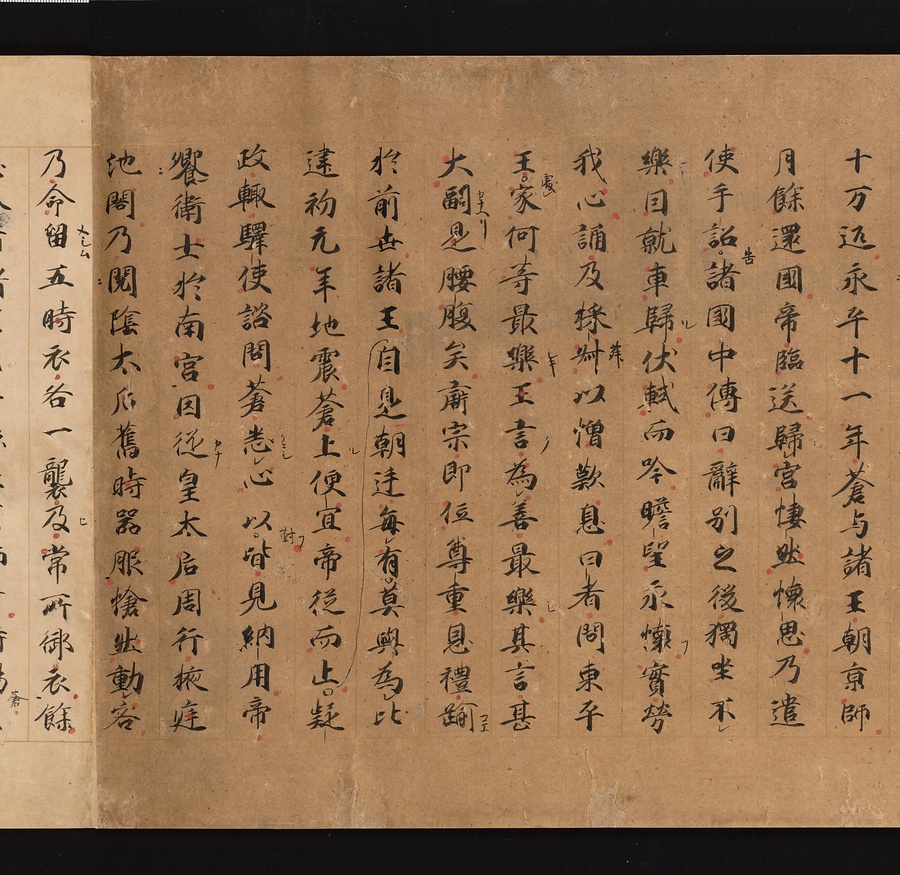 十万疋永平十一年蒼与諸王朝京師
月餘還國帝臨送歸宮悽然懷思乃遣
使手詔諸國中傳曰辭別之後獨坐不
告
樂因就車歸伏軾而吟瞻望永懷實勞
我心誦及採艸以增歎息曰者問東平
王家何等最樂王言為善最樂其言甚
處
大嗣是腰腹矣肅宗即位尊重恩禮踰
於前世諸王自是朝廷每有莫與為比
建初元年地震蒼上便宜帝從而止疑
政輙驛使諮問蒼悉心以皆見納用帝
對
饗衛士於南宮因從皇太后周行掖庭
池閣乃閲陰太后舊時器服愴然動容
乃命留五時衣各一襲及常所御衣餘
蒼